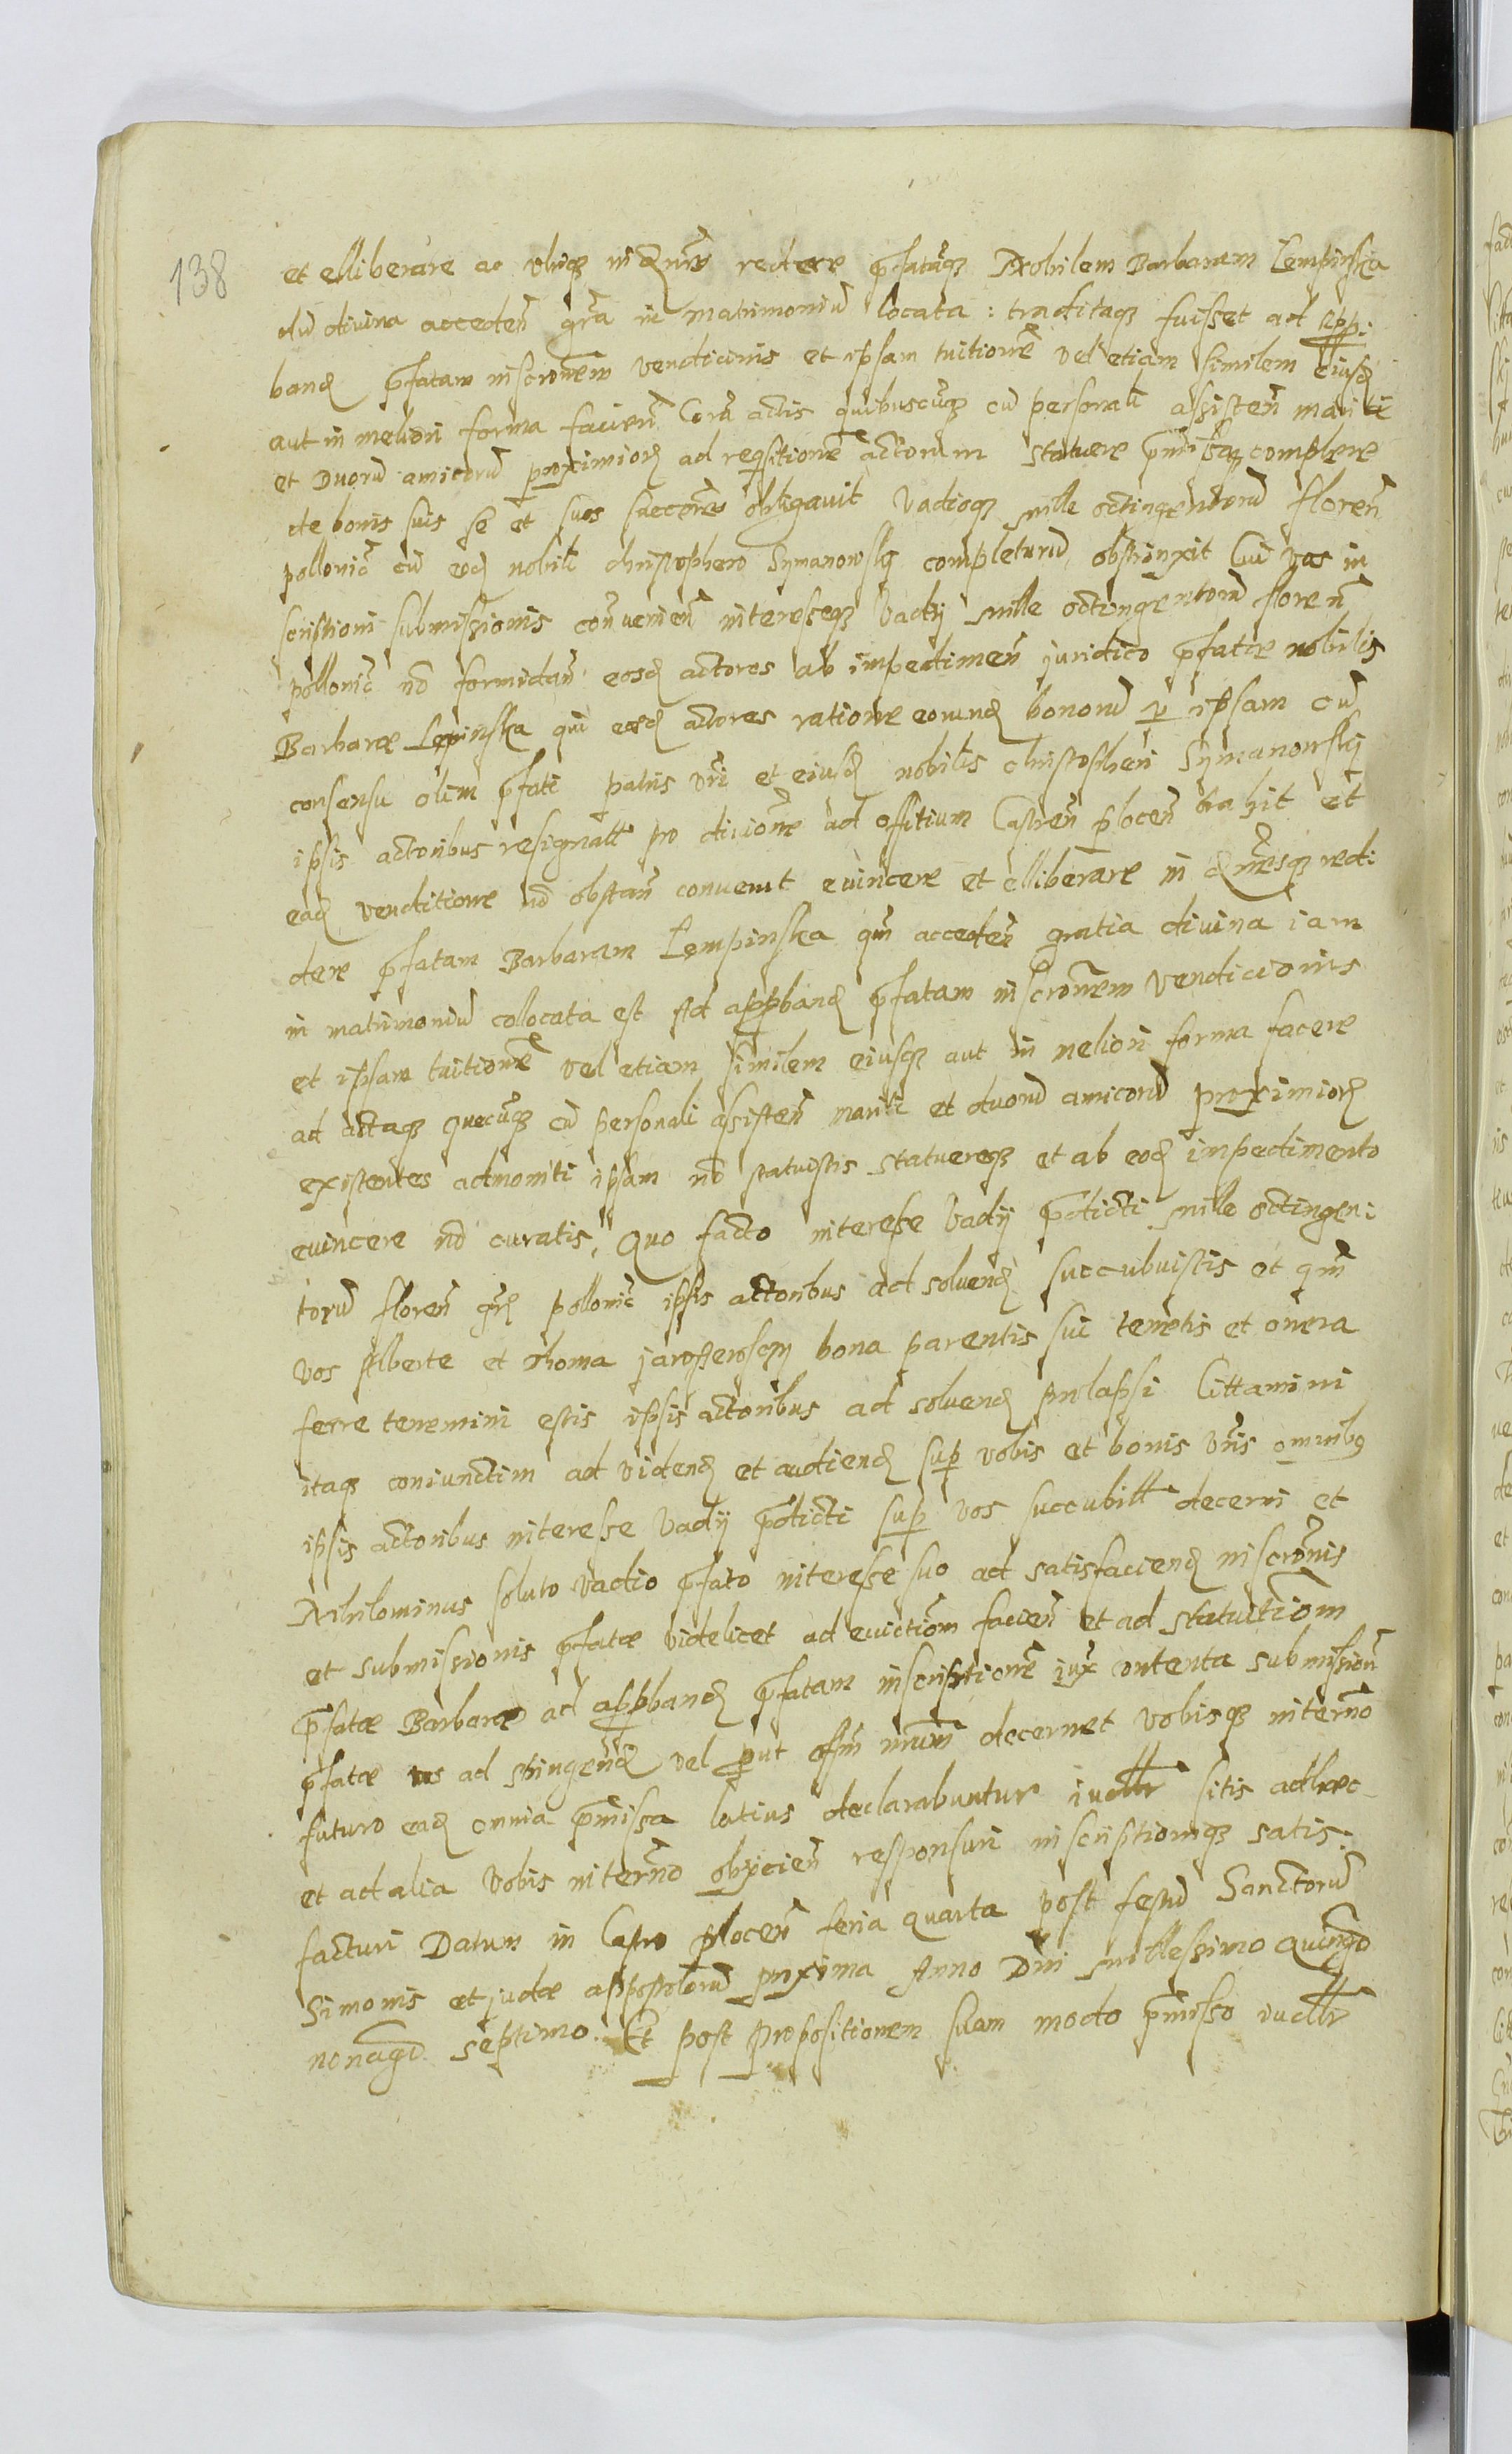 138
et elliberare ac vbiq₃ indemnes reddere p̄fatāq₃ Nobilem Barbaram Lempinska
dū divina acceden̄ gr̄a in matrimoniū locata: traditaq₃ fuisset ad app:
band p̄fatam inscr̄onem vendicionis et ipsam tuitionē vel etiam similem eiusd
aut in meliori forma facien̄ Corā actis quibuscūq₃ cū personali assisten̄ mariti
et Duorū amicorū proximior ad reqsitionē actorum statuere p̄missaq₃ complere
de bonis suis se et suos succōres obligavit vadioq₃ mille octingentorū floren̄
pollonic̄ cū eod nobili christophero Symanowsky completurū obstrinxit Cui vos in
scriptioni submissionis conveniēn̄ interesseq₃ vadij mille octingentorū floren̄
pollonic̄ nō formidan̄ eosd actores ab impedimen̄ juridico p̄fatæ nobilis
Barbaræ Lepinska qui eosd actores ratione eorund bonorū p ipsam cū
consensu olim p̄fati patris vr̄i et eiusd nobilis christopheri Symanowskj
ipsis actoribus resignatt pro divione ad offitium Castren̄ plocen̄ trahit et
ead venditione nō obstan̄ convenit evincere et elliberare indemnesq₃ red:
dere p̄fatam Barbaram Lempinska qm̄ acceden̄ gratia divina iam
in matrimoniū collocata est Ad appband p̄fatam inscr̄onem vendicionis
et ipsam tuitionē vel etiam similem eiusq₃ aut in meliori forma facere
ad actaq₃ quecūq₃ cū personali assisten̄ mariti et duorū amicorū proximior
existentes admoniti ipsam nō statuistis statuereq₃ et ab eod impedimento
evincere nō curatis, Quo facto interesse vadij p̄dicti mille octingen:
torū floren̄ pollonic̄ ipsis actoribus ad solvend succubuistis et qm̄
vos Alberte et Thoma bona parentis sui tenetis et onera
ferre tenemini estis ipsis actoribus ad solvend prolapsi Cittamini
itaq₃ coniunctim ad vidend et audiend sup vobis et bonis vr̄is omnib9
ipsis actoribus interesse vadij p̄dicti sup vos succubitt decerni et
Nihilominus soluto vadio p̄fato interesse suo ad satisfaciend inscr̄onis
et submissionis p̄fatæ videlicet ad evictiōm facien̄ et ad statuitiōm
p̄fatæ Barbaræ ad appband p̄fatam inscriptionē iux contenta submission̄
p̄fatæ vos ad stringen̄d vel put decernet vobisq₃ intermō
futuro ead omnia p̄missa latius declarabuntur iudltr sitis adhæc
et ad alia vobis intermō obijcien̄ responsuri inscriptioniq₃ satis:
facturi Datum in Castro plocen̄ feria quarta post festū Sanctorū
Simonis et judæ appostolorū proxima Anno Dn̄i millessimo quingmo
nonagmo septimo. Et post propositionem suam modo p̄misso iudltr